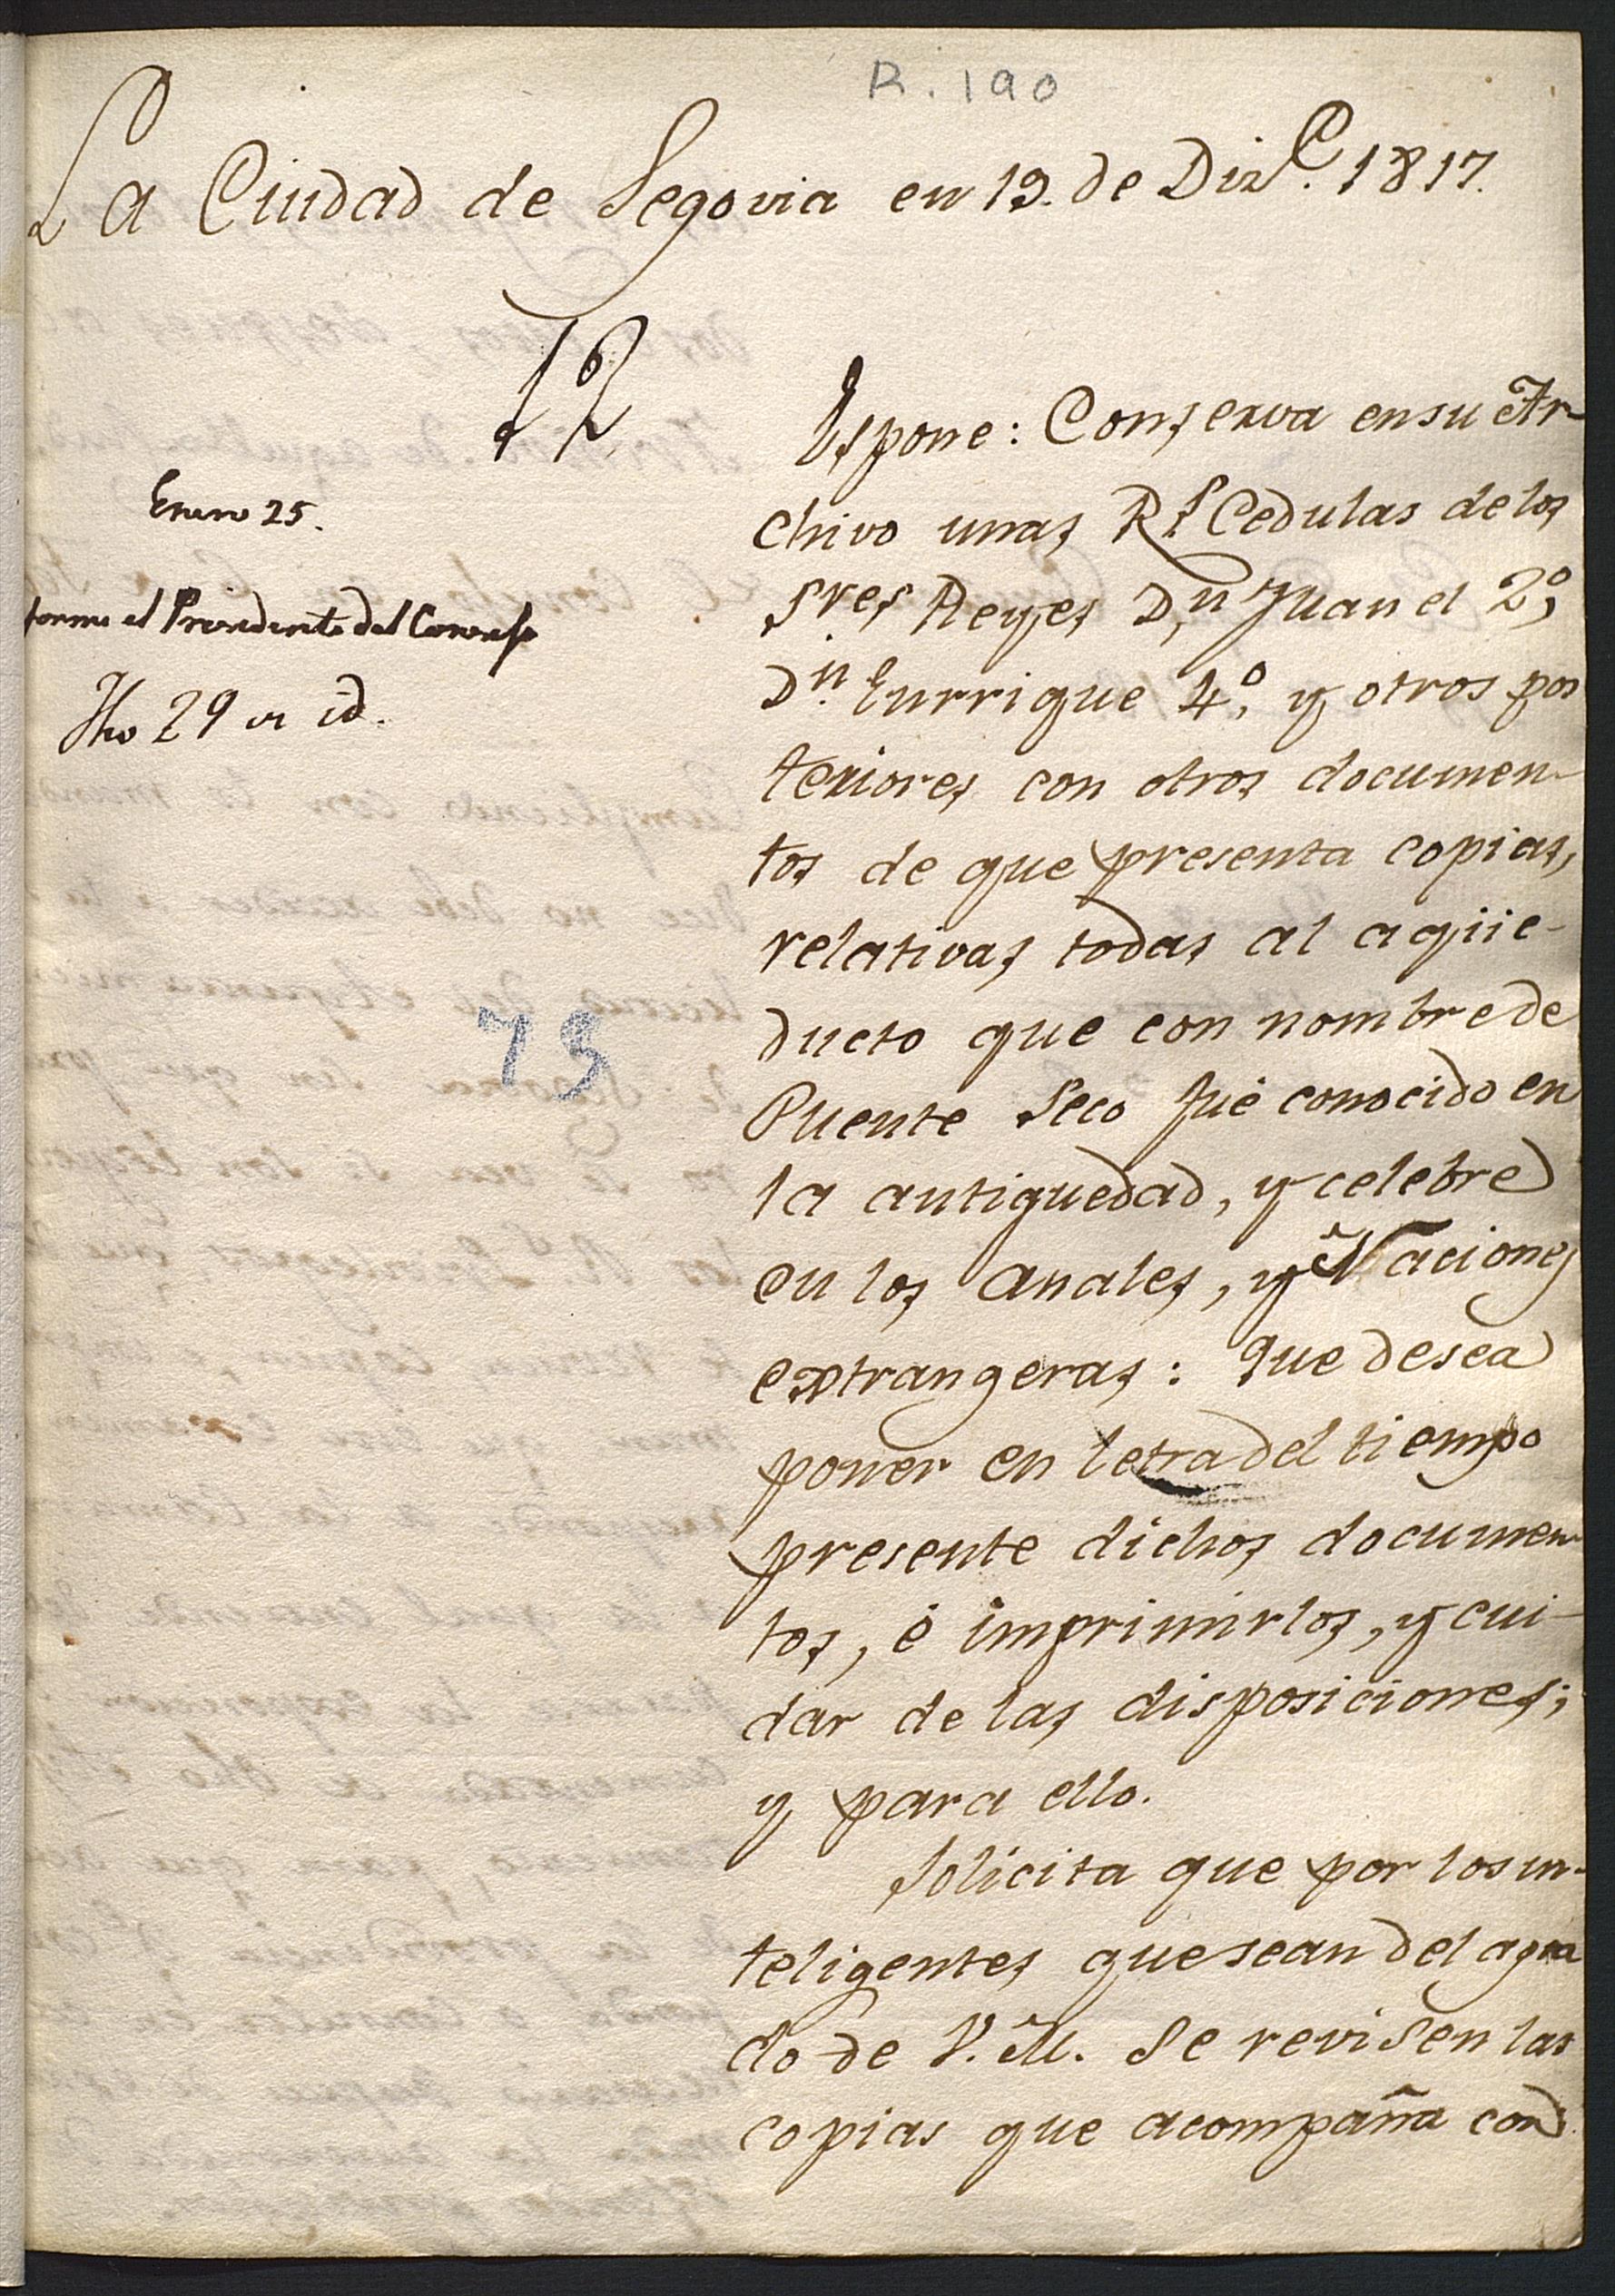 R. 190
La Ciudad de Segovia en 19. de Diz.e 1817.
12
Enero 25.
forme el Presidente del Consejo
Fho 29 en id.
Espone: Conserva en su Ar-
chivo unas R.s Cedulas de los
Sres Reyes D.n Juan el 2.o,
D.n Enrrique 4.o, y otros pos
teriores con otros documen-
tos de que presenta copias,
relativas todas al agüe-
ducto que con nombre de
Puente Seco fué conocido en
la antiguedad, y celebre
en los Anales, y Naciones
extrangeras: que desea
poner en letra del tiempo
presente dichos documen-
tos, é imprimirlos, y cui-
dar de las disposiciones;
y para ello.
Solicita que por los in-
teligentes que sean del agra
do de V.M. se revisen las
copias que acompaña con
75